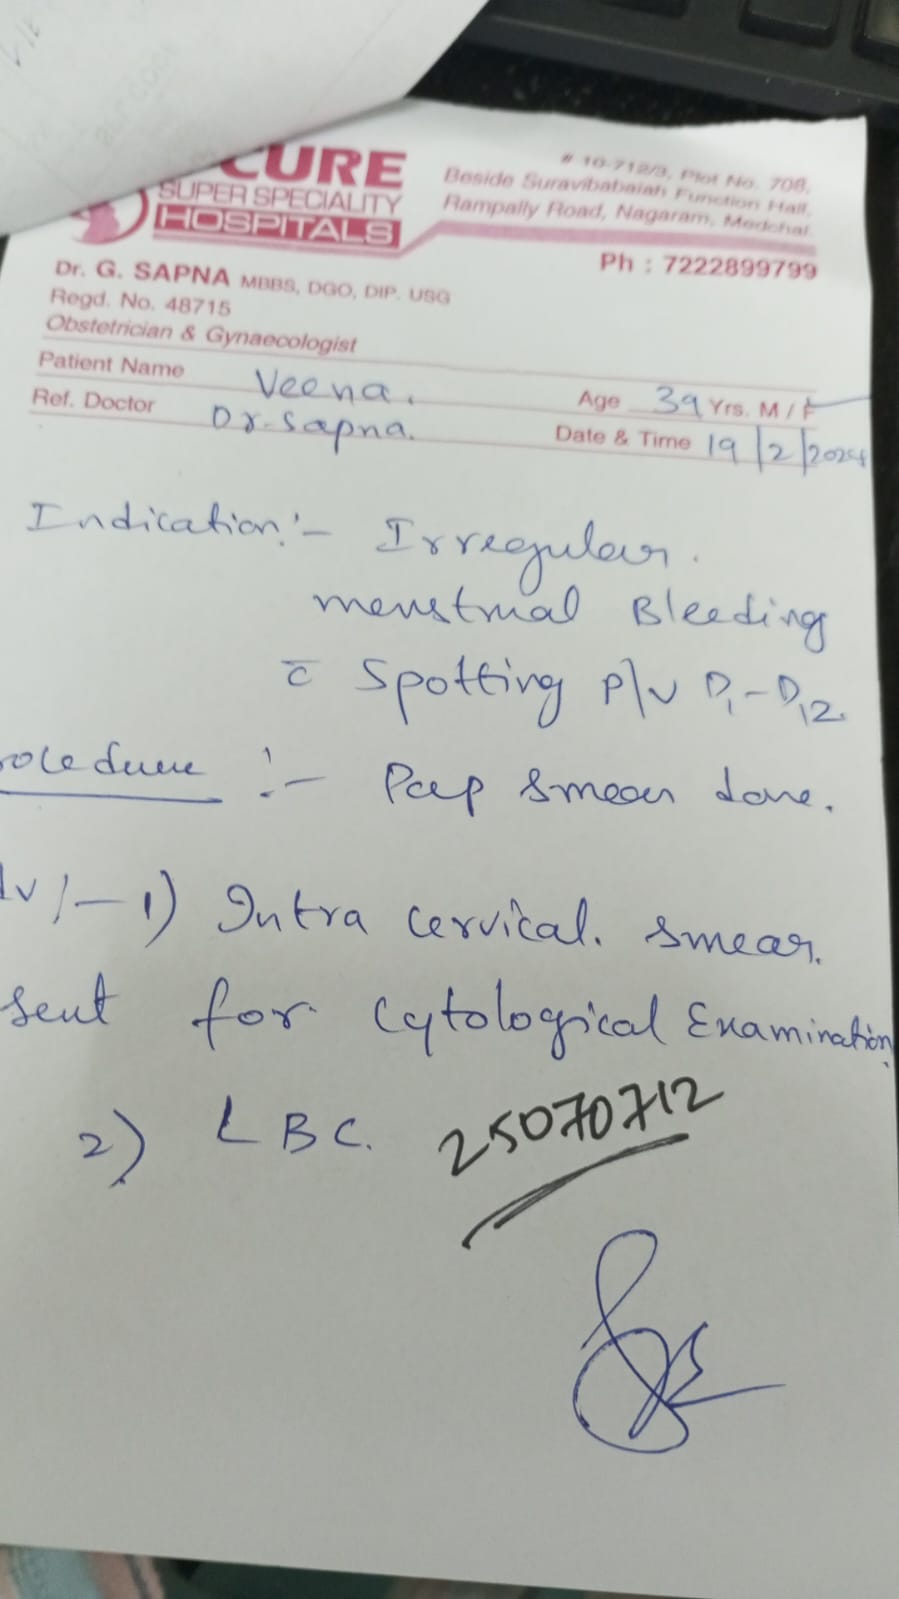 CURE
SUPER SPECIALITY
HOSPITALS
# 10-712/3, Plot No. 708,
Beside Suravibabaiah Function Hall,
Rampally Road, Nagaram, Medchal
Ph : 7222899799
Dr. G. SAPNA MBBS, DGO, DIP. USG
Regd. No. 48715
Obstetrician & Gynaecologist
Patient Name Veena. Age 39 Yrs. M / F
Ref. Doctor Dr. Sapna. Date & Time 19/2/2024
Indication:- Irregular.
menstrual Bleeding
c̄ Spotting P/V D1-D12.
ocedure :- Pap smear done.
dv:- 1) Intra cervical. smear.
sent for Cytological Examination.
2) LBC. 25070712